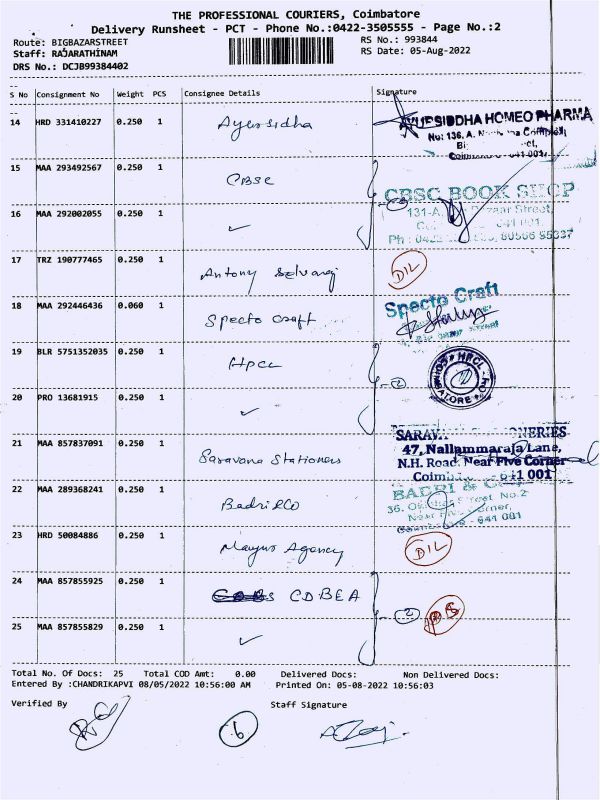 THE PROFESSIONAL COURIERS, Coimbatore
Delivery Runsheet - PCT - Phone No.:0422-3505555 - Page No.:2
Route: BIGBAZARSTREET RS No.: 993844
Staff: RAJARATHINAM RS Date: 05-Aug-2022
DRS No.: DCJB99384402
S No Consignment No Weight PCS Consignee Details Signature
14 HRD 331410227 0.250 1 Ayursidha
SIDDHA HOMEO PHARMA
No: 136, A.
15 MAA 293492567 0.250 1 CBSC
CBSC BOOK SHOP
16 MAA 292002055 0.250 1 ✓
131-A, Street,
17 TRZ 190777465 0.250 1 Antony Selvaraj DIL
18 MAA 292446436 0.060 1 Specto craft
Specto Craft
19 BLR 5751352035 0.250 1 HPCL 2
HPCL
20 PRO 13681915 0.250 1 ✓
21 MAA 857837091 0.250 1 Saravana Stationers
47, Nallammaraja Lane,
N.H. Road, Near Five Corner
001
22 MAA 289368241 0.250 1 Badri & Co
BADRI &
36. Street No.2
Corner,
641 001
23 HRD 50084886 0.250 1 Mayur Agency DIL
24 MAA 857855925 0.250 1 CDBEA 2
25 MAA 857855829 0.250 1 ✓
Total No. Of Docs: 25 Total COD Amt: 0.00 Delivered Docs: Non Delivered Docs:
Entered By :CHANDRIKAPVI 08/05/2022 10:56:00 AM Printed On: 05-08-2022 10:56:03
Verified By Staff Signature
6